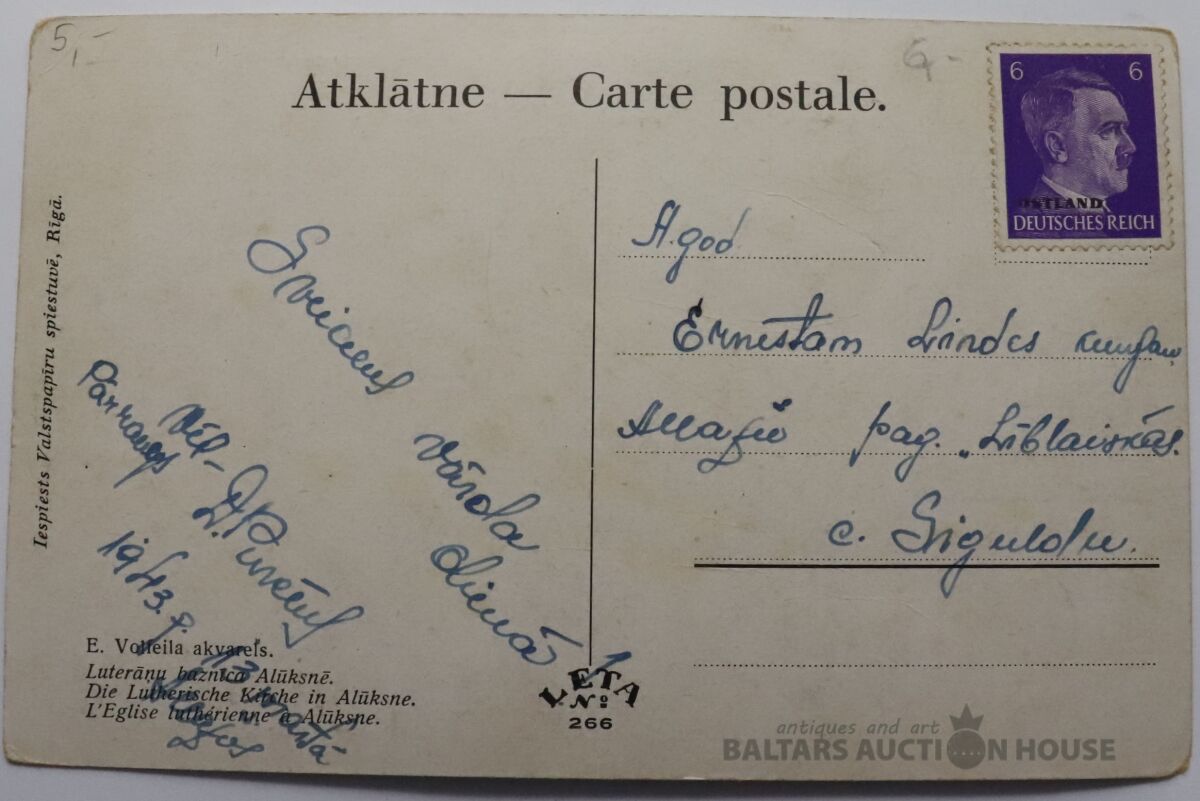 5,-
6.-
Atklātne — Carte postale.
6 6
OSTLAND
DEUTSCHES REICH
A. god.
Ernestam Lindes kungam
Allažu pag.
c. Siguldu.
Sveiciens
vārda
dienā!
1943. g.
13
E. Volfeila akvarels.
Luterāņu baznīca Alūksnē.
Die Lutherische Kirche in Alūksne.
L'Eglise luthérienne à Alūksne.
Iespiests Valstspapīru spiestuvē, Rīgā.
LETA
№
266
antiques and art
BALTARS AUCTION HOUSE